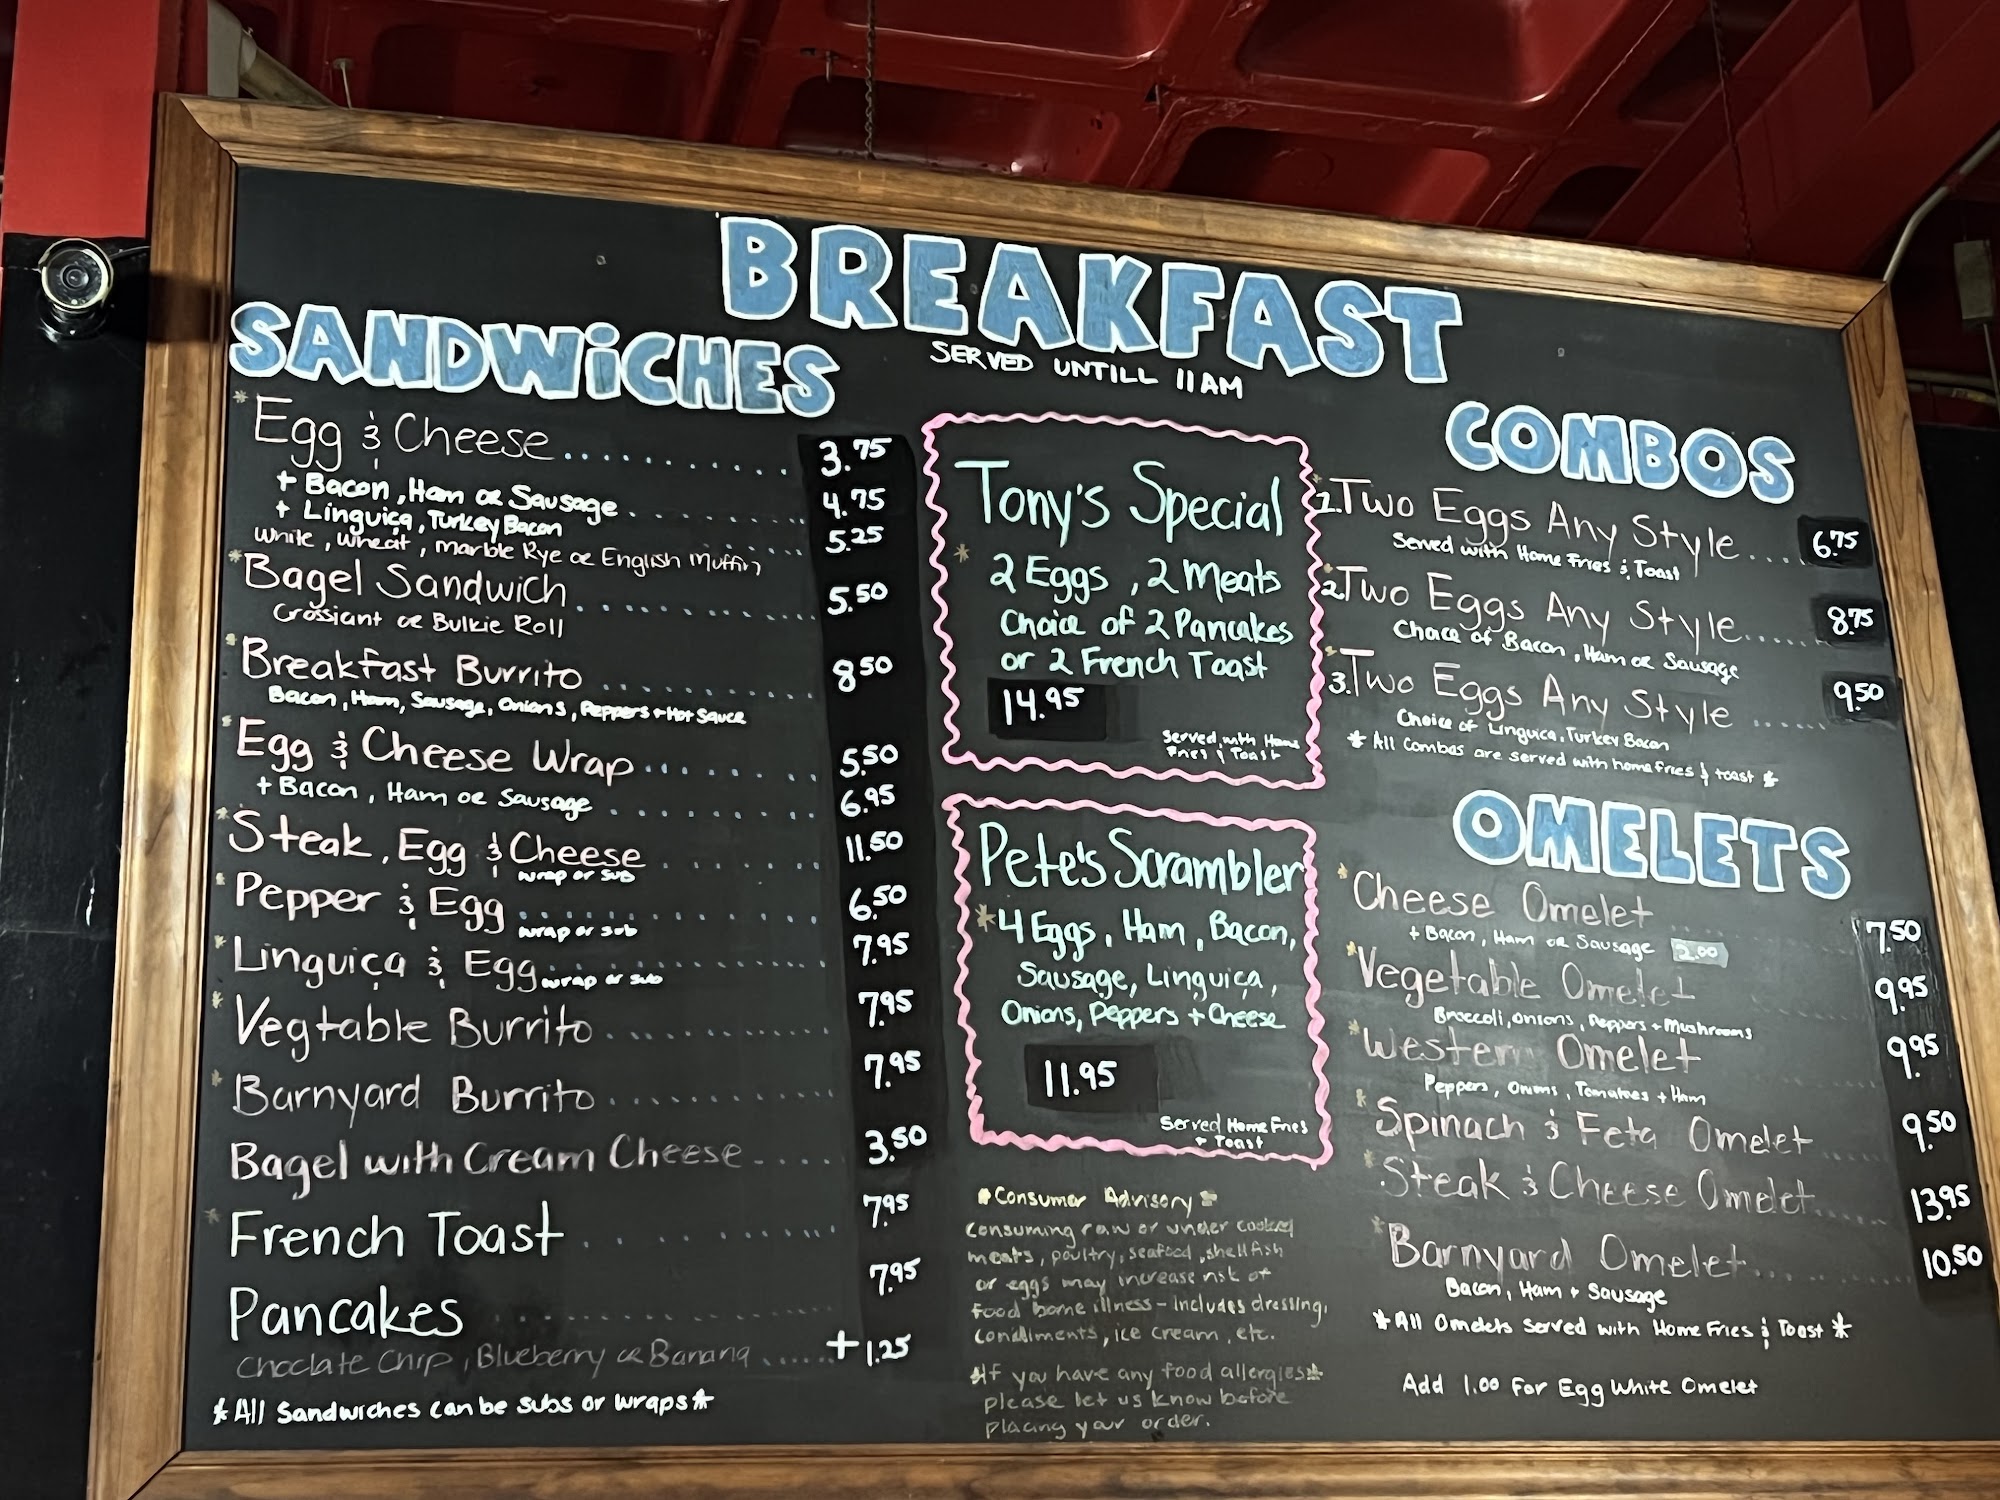 BREAKFAST
SERVED UNTILL 11AM
SANDWiCHES
*Egg & Cheese............ 3.75
+ Bacon, Ham or Sausage............ 4.75
+ Linguiça, Turkey Bacon............ 5.25
White, wheat, marble Rye or English Muffin
*Bagel Sandwich............ 5.50
Crossiant or Bulkie Roll
*Breakfast Burrito............ 8.50
Bacon, Ham, Sausage, Onions, Peppers + Hot Sauce
*Egg & Cheese Wrap............ 5.50
+ Bacon, Ham or Sausage............ 6.95
*Steak, Egg & Cheese............ 11.50
wrap or sub
*Pepper & Egg............ 6.50
wrap or sub
*Linguiça & Egg............ 7.95
wrap or sub
*Vegtable Burrito............ 7.95
*Barnyard Burrito............ 7.95
Bagel with Cream Cheese...... 3.50
*French Toast............ 7.95
Pancakes............ 7.95
Choclate Chip, Blueberry or Banana...... +1.25
*All Sandwiches can be subs or wraps*
Tony's Special
*2 Eggs, 2 Meats
Choice of 2 Pancakes
or 2 French Toast
14.95
Served with Home
Fries & Toast
Pete's Scrambler
*4 Eggs, Ham, Bacon,
Sausage, Linguiça,
Onions, Peppers + Cheese
11.95
Served Home Fries
+ Toast
*Consumer Advisory*
Consuming raw or under cooked
meats, poultry, seafood, shellfish
or eggs may increase risk of
food borne illness - includes dressing,
condiments, ice cream, etc.
*If you have any food allergies*
please let us know before
placing your order.
COMBOS
*1.Two Eggs Any Style.... 6.75
Served with Home Fries & Toast
*2.Two Eggs Any Style...... 8.75
Choice of Bacon, Ham or Sausage
*3.Two Eggs Any Style...... 9.50
Choice of Linguica, Turkey Bacon
*All Combos are served with homefries & toast*
OMELETS
*Cheese Omelet............ 7.50
+ Bacon, Ham or Sausage 2.00
*Vegetable Omelet............ 9.95
Broccoli, onions, Peppers + Mushrooms
*Western Omelet............ 9.95
Peppers, Onions, Tomatoes + Ham
*Spinach & Feta Omelet...... 9.50
*Steak & Cheese Omelet...... 13.95
*Barnyard Omelet............ 10.50
Bacon, Ham + Sausage
*All Omelets Served with Home Fries & Toast*
Add 1.00 For Egg White Omelet